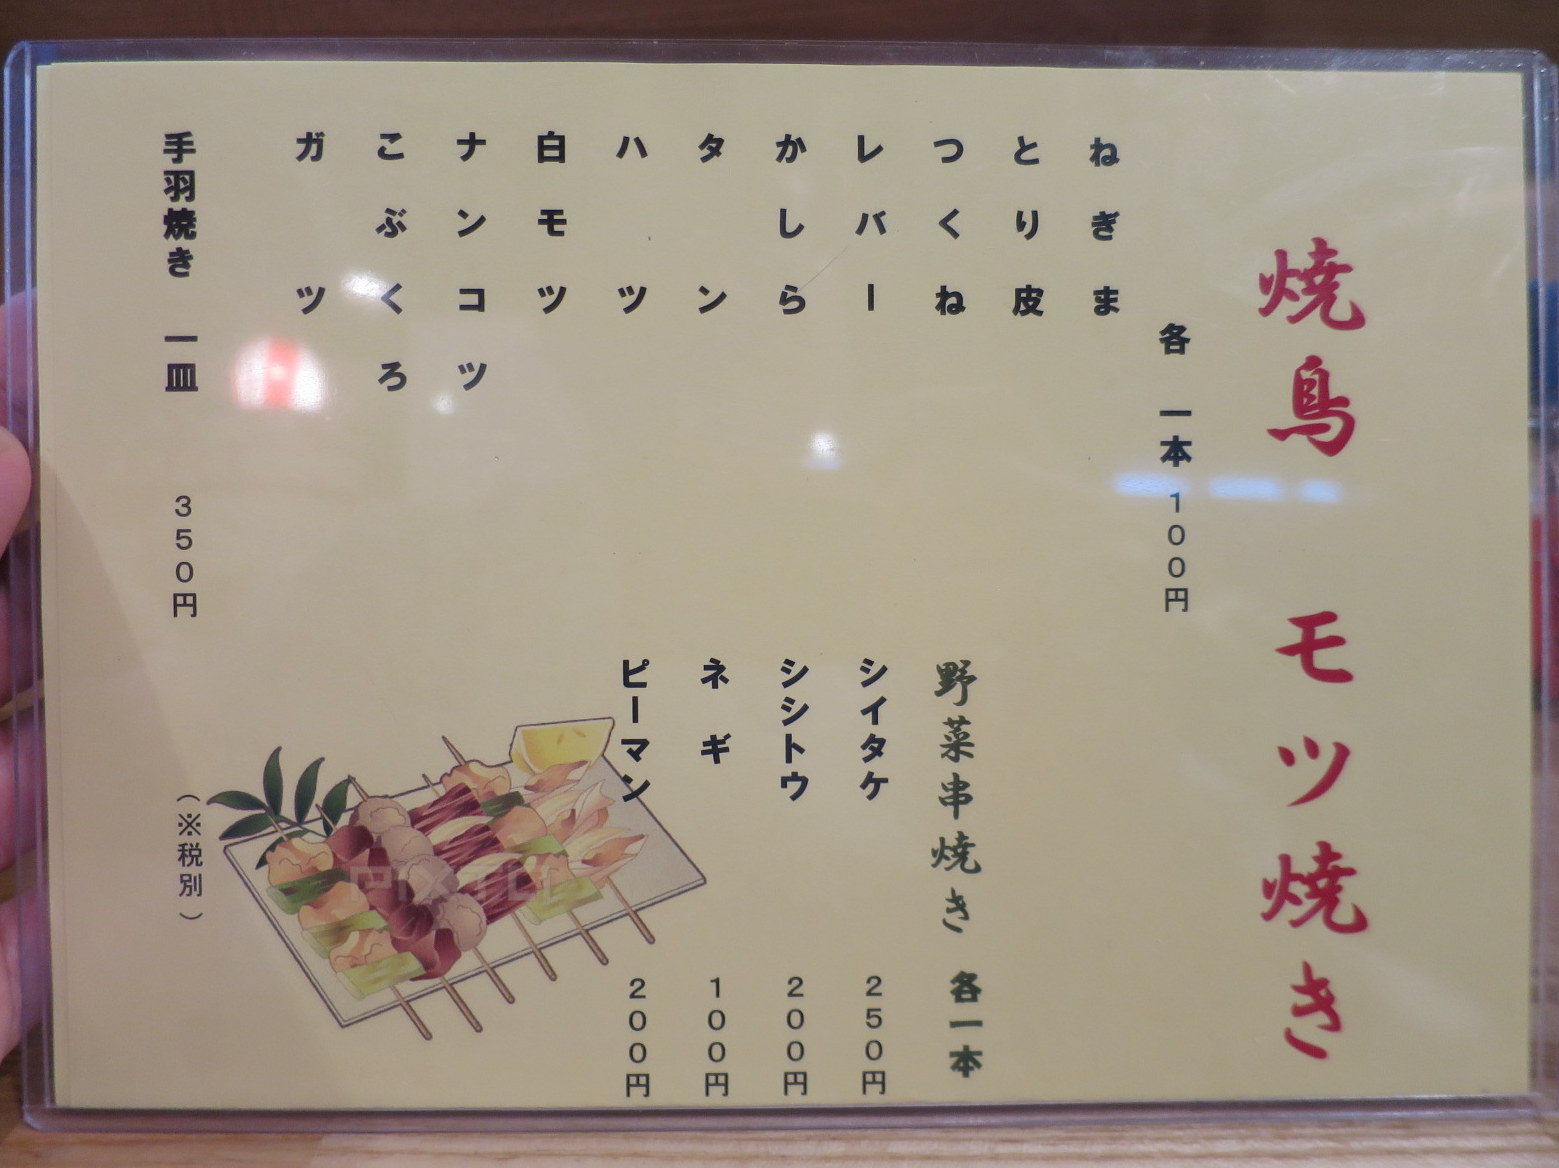 焼鳥 モツ焼き
各 一本 100円
ねぎま
とり皮
つくね
レバー
かしら
タン
ハツ
白モツ
ナンコツ
こぶくろ
ガツ
手羽焼き 一皿 350円
野菜串焼き 各一本
シイタケ 250円
シシトウ 200円
ネギ 100円
ピーマン 200円
（※税別）